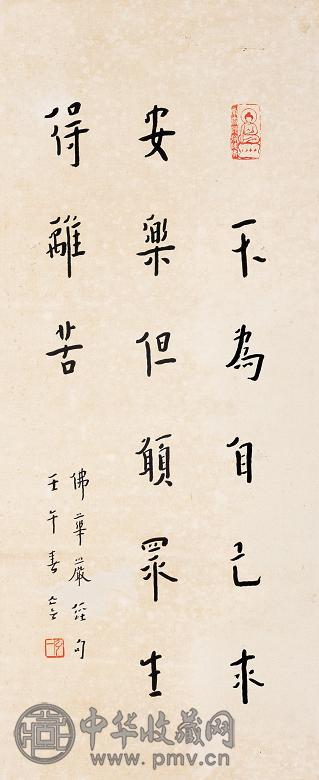 不為自己求
安樂但願眾生
得離苦
佛華嚴經句
壬午春
中华收藏网
www.pmv.cn